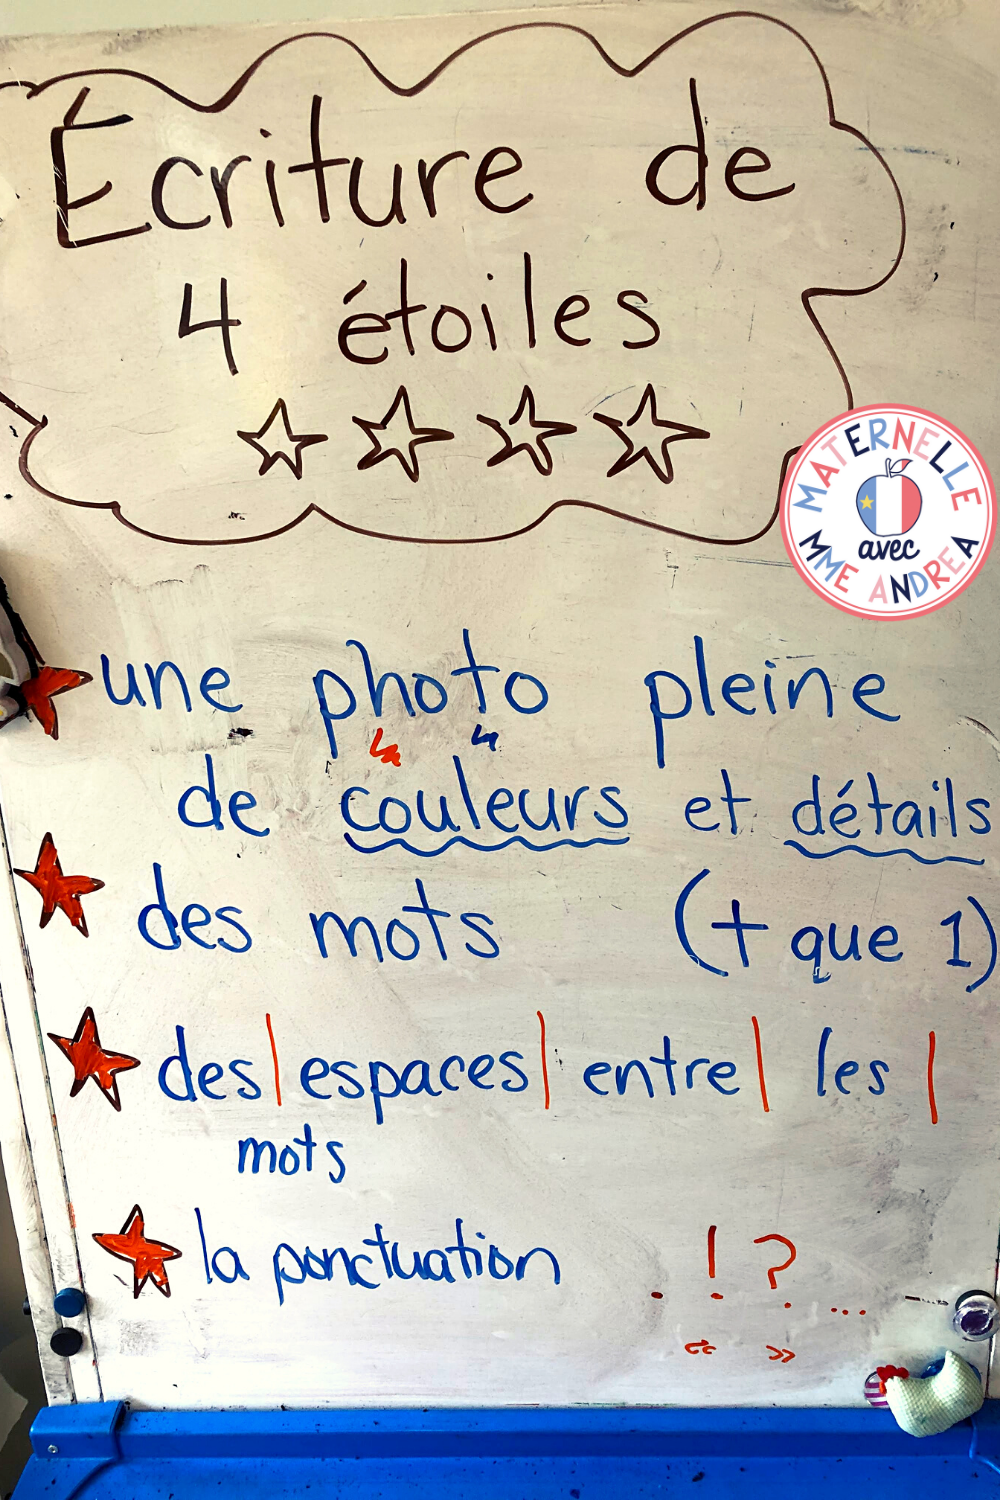 Écriture de
4 étoiles
MATERNELLE
avec
MME ANDREA
une photo pleine
de couleurs et détails
des mots (+ que 1)
des| espaces| entre| les |
mots
la ponctuation . ! ? ...
« »